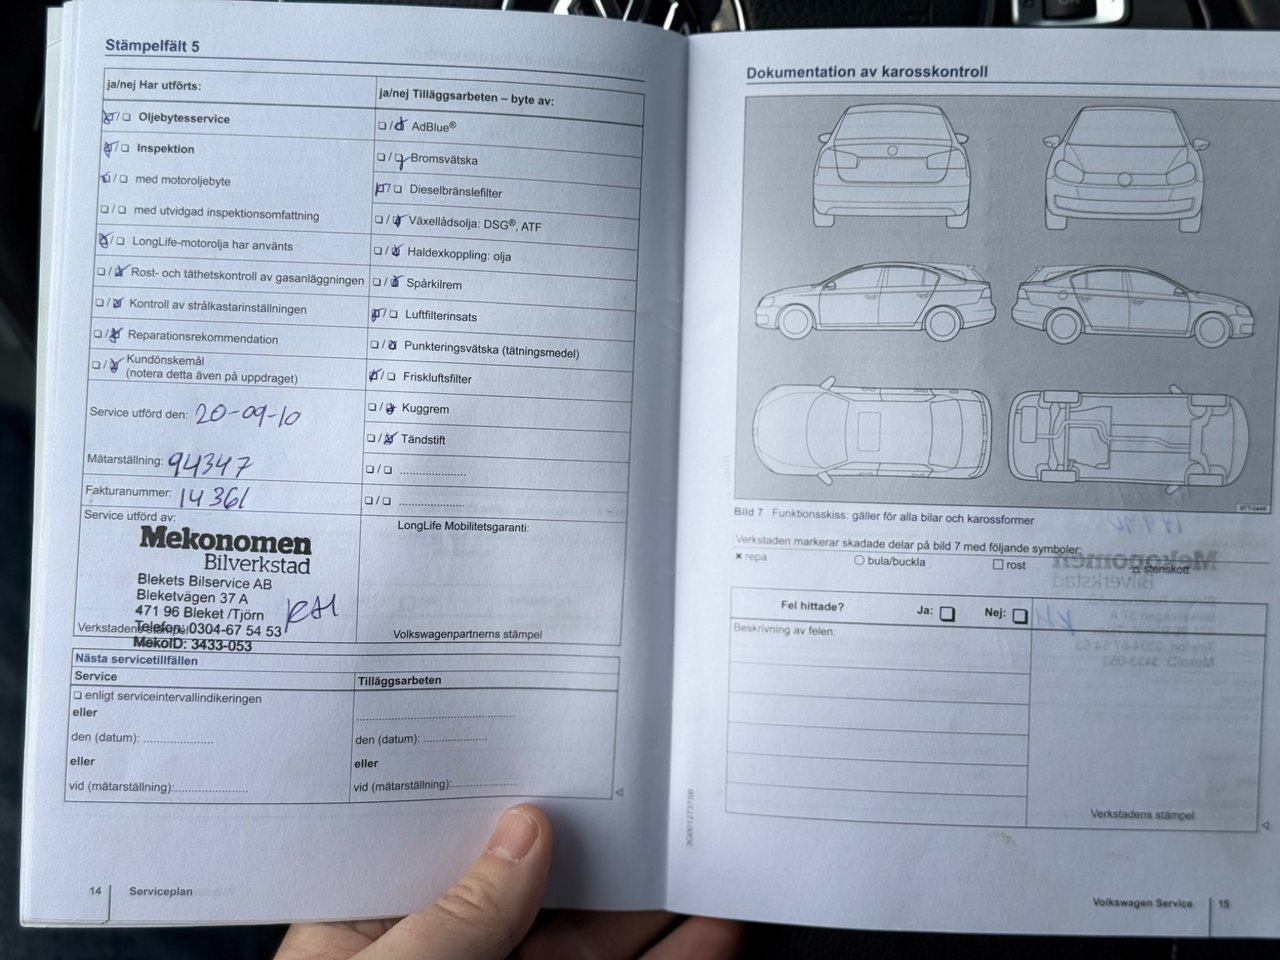 Stämpelfält 5
ja/nej Har utförts:
☒/☐ Oljebytesservice
☒/☐ Inspektion
☒/☐ med motoroljebyte
☐/☐ med utvidgad inspektionsomfattning
☒/☐ LongLife-motorolja har använts
☐/☒ Rost- och täthetskontroll av gasanläggningen
☐/☒ Kontroll av strålkastarinställningen
☐/☒ Reparationsrekommendation
☐/☒ Kundönskemål
(notera detta även på uppdraget)
Service utförd den: 20-09-10
Mätarställning: 94347
Fakturanummer: 14361
Service utförd av:
Mekonomen
Bilverkstad
Blekets Bilservice AB
Bleketvägen 37 A
471 96 Bleket /Tjörn
Telefon: 0304-67 54 53
Verkstadens stämpel
MekoID: 3433-053
ja/nej Tilläggsarbeten – byte av:
☐/☒ AdBlue®
☐/☒ Bromsvätska
☒/☐ Dieselbränslefilter
☐/☒ Växellådsolja: DSG®, ATF
☐/☒ Haldexkoppling: olja
☐/☒ Spårkilrem
☒/☐ Luftfilterinsats
☐/☒ Punkteringsvätska (tätningsmedel)
☒/☐ Friskluftsfilter
☐/☒ Kuggrem
☐/☒ Tändstift
☐/☐ ......................
☐/☐ ......................
LongLife Mobilitetsgaranti:
Volkswagenpartnerns stämpel
Nästa servicetillfällen
Service
☐ enligt serviceintervallindikeringen
eller
den (datum): ......................
eller
vid (mätarställning):......................
Tilläggsarbeten
..................................................
den (datum): ......................
eller
vid (mätarställning):......................
14 Serviceplan
Dokumentation av karosskontroll
Bild 7 Funktionsskiss: gäller för alla bilar och karossformer
Verkstaden markerar skadade delar på bild 7 med följande symboler:
× repa ○ bula/buckla □ rost △ stenskott
Fel hittade? Ja: ☐ Nej: ☐
Beskrivning av felen:
Verkstadens stämpel
Volkswagen Service 15